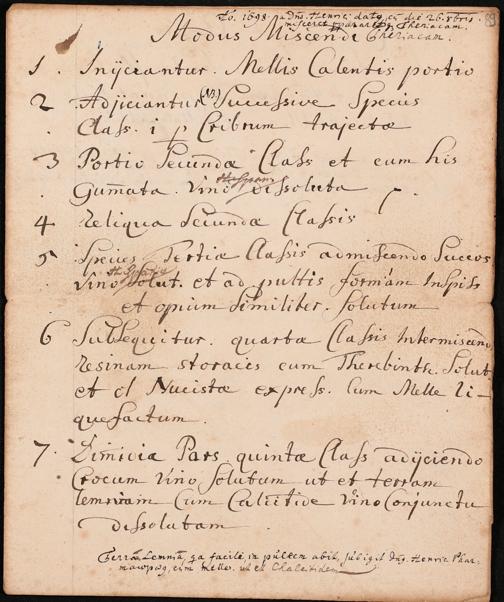 Ao. 1698. a dno. Henric. dato, cū die 26. 8bris
misceret Theriacam.
89
Modus Miscendi Theriacam.
1. Inijciantur. Mellis Calentis portio
2 Adjiciantur (NB) Successive Species
Class. i p Cribrum trajectæ
3 Portio Secundæ Class et cum his
Gum̄ata. Vino dissoluta
4 Reliqua Secundæ Classis
5 Species Tertiæ Classis admiscendo Succos
Vino Solut. et ad pultis formam Inspiss
et opium Similiter. Solutum
6 Subsequitur. quartæ Classis Intermiscend
resinam storacis cum Therebinth. Solut
et ol Nucistæ express. Cum Melle li-
quefactum.
7. Dimidia Pars. quintæ Class adijciendo
Crocum Vino Solutum ut et terram
lemniam Cum Calcitide Vino Conjunctu
dissolutam
Terrā Lemniā, qa facile in pulverē abit, subigit dns. Henric. Phar-
macop, cum melle. ut et Chalcitidem